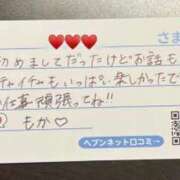 さま
初めましてだったけどお話も
イチャイチャもいっぱい楽しかったで
お仕事頑張ってね!!
もか♡
ヘブンネット口コミ→